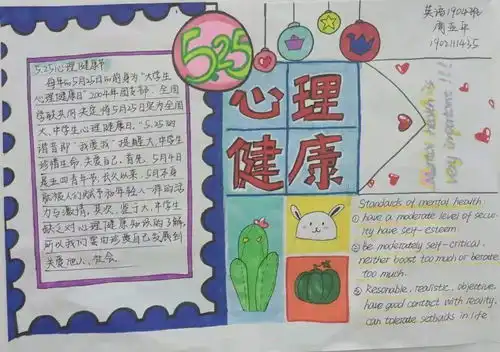 5.25心理健康节
每年的5月25日的前身为"大学生
心理健康日"2004年团支部、全国
学联共同决定,将5月25日定为全国
大、中学生心理健康日。"5.25的
谐音即"我爱我",提醒大、中学生
珍惜生命、关爱自己。首先,5月4日
是五四青年节,长久以来,5月不身
和年轻人一样的活
力与激情。其次,鉴于大、中学生
缺乏对心理健康知识的了解,
所以我们要由珍爱自己发展到
关爱他人、社会
5.25
心理
健康
英语1904班
周
1902111435
Mental health is
very important!!!
Standards of mental health
① have a moderate level of secu-
rity have self-esteem
② be moderately self-critical,
neither boost too much or berate
too much.
③ Resonable, realistic, objective,
have good contact with reality,
can tolerate setbacks in life